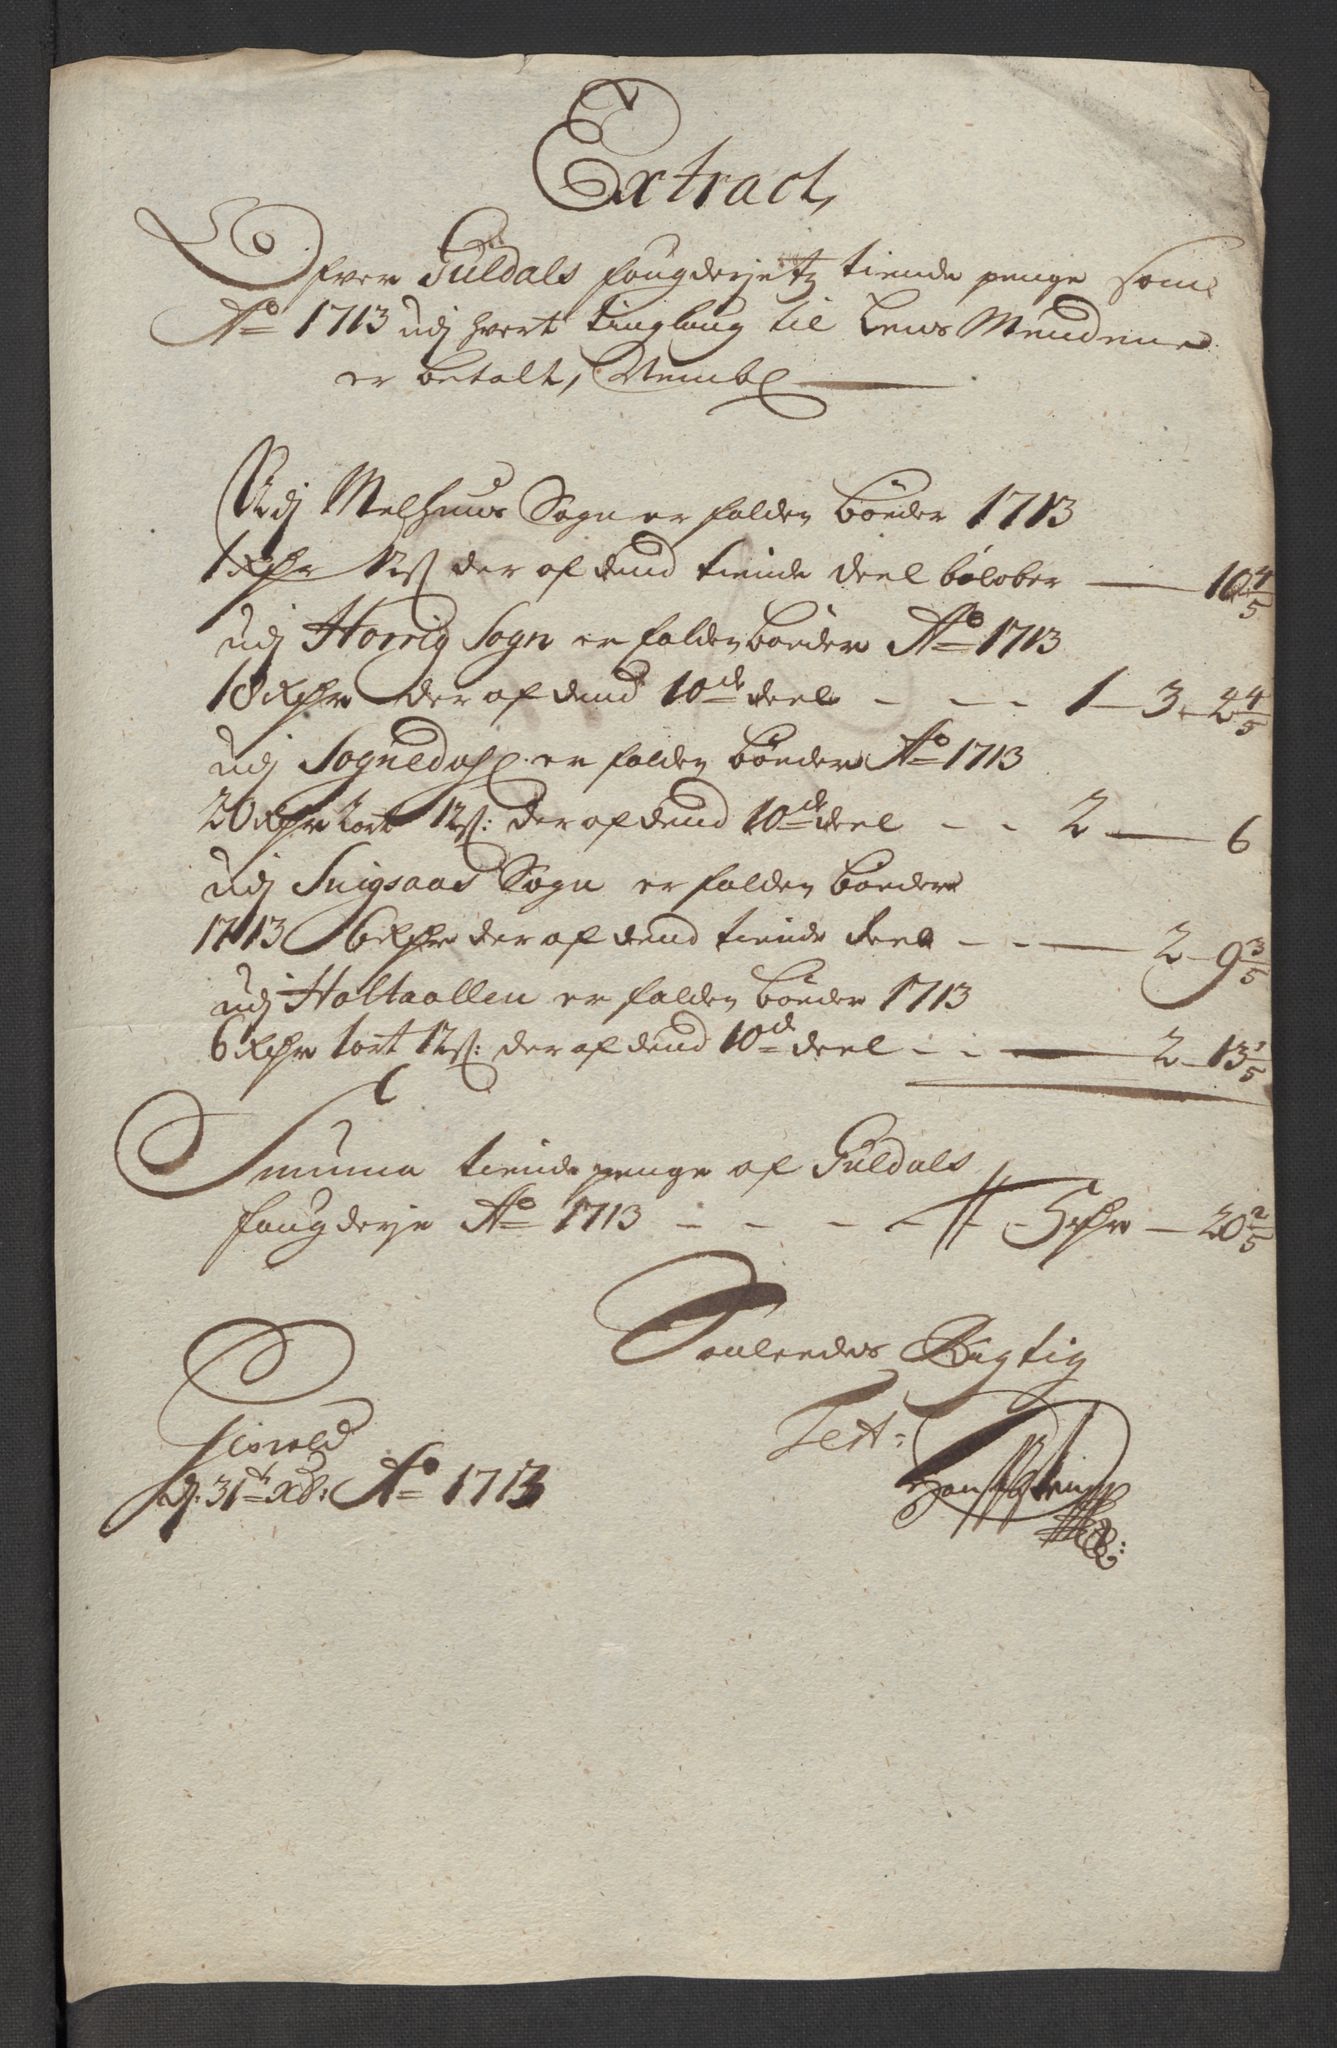 Extract,
Ofver Guldals fougderjetz tiende penge som
Ao 1713 udj hvert tinglaug til Lens Mendene
er betalt, Nembl
Udj Melhuus Sogn er falden bøeder 1713
1 Rdhr 12 s der af dend tiende deel beløber — 10 4/5
udj Horrig Sogn er falden bøeder Ao 1713
18 Rdhr der af dend 10de deel - - - 1 - 3 - 2 4/5
udj Sognedahl er falden bøeder Ao 1713
20 Rdhr 2 ort 12 s: der af dend 10de deel - - 2 — 6
udj Snigsaas Sogn er falden bøeder
1713 6 Rdhr der af dend tiende deel - - — 2 - 9 3/5
udj Holtaallen er falden bøeder 1713
6 Rdhr 1 ort 12 s: der af dend 10de deel - - — 2 - 13 1/5
Summa tiende penge af Guldals
fougderje Ao 1713 - - - - - 5 rdhr — 20 2/5
Saaleedes Rigtig
Test:
d. 31te xb: Ao 1713